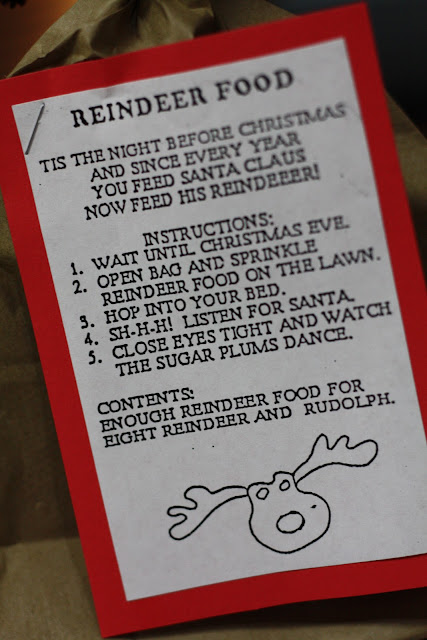 REINDEER FOOD
TIS THE NIGHT BEFORE CHRISTMAS
AND SINCE EVERY YEAR
YOU FEED SANTA CLAUS
NOW FEED HIS REINDEEER!
INSTRUCTIONS:
1. WAIT UNTIL CHRISTMAS EVE.
2. OPEN BAG AND SPRINKLE
REINDEER FOOD ON THE LAWN.
3. HOP INTO YOUR BED.
4. SH-H-H! LISTEN FOR SANTA.
5. CLOSE EYES TIGHT AND WATCH
THE SUGAR PLUMS DANCE.
CONTENTS:
ENOUGH REINDEER FOOD FOR
EIGHT REINDEER AND RUDOLPH.